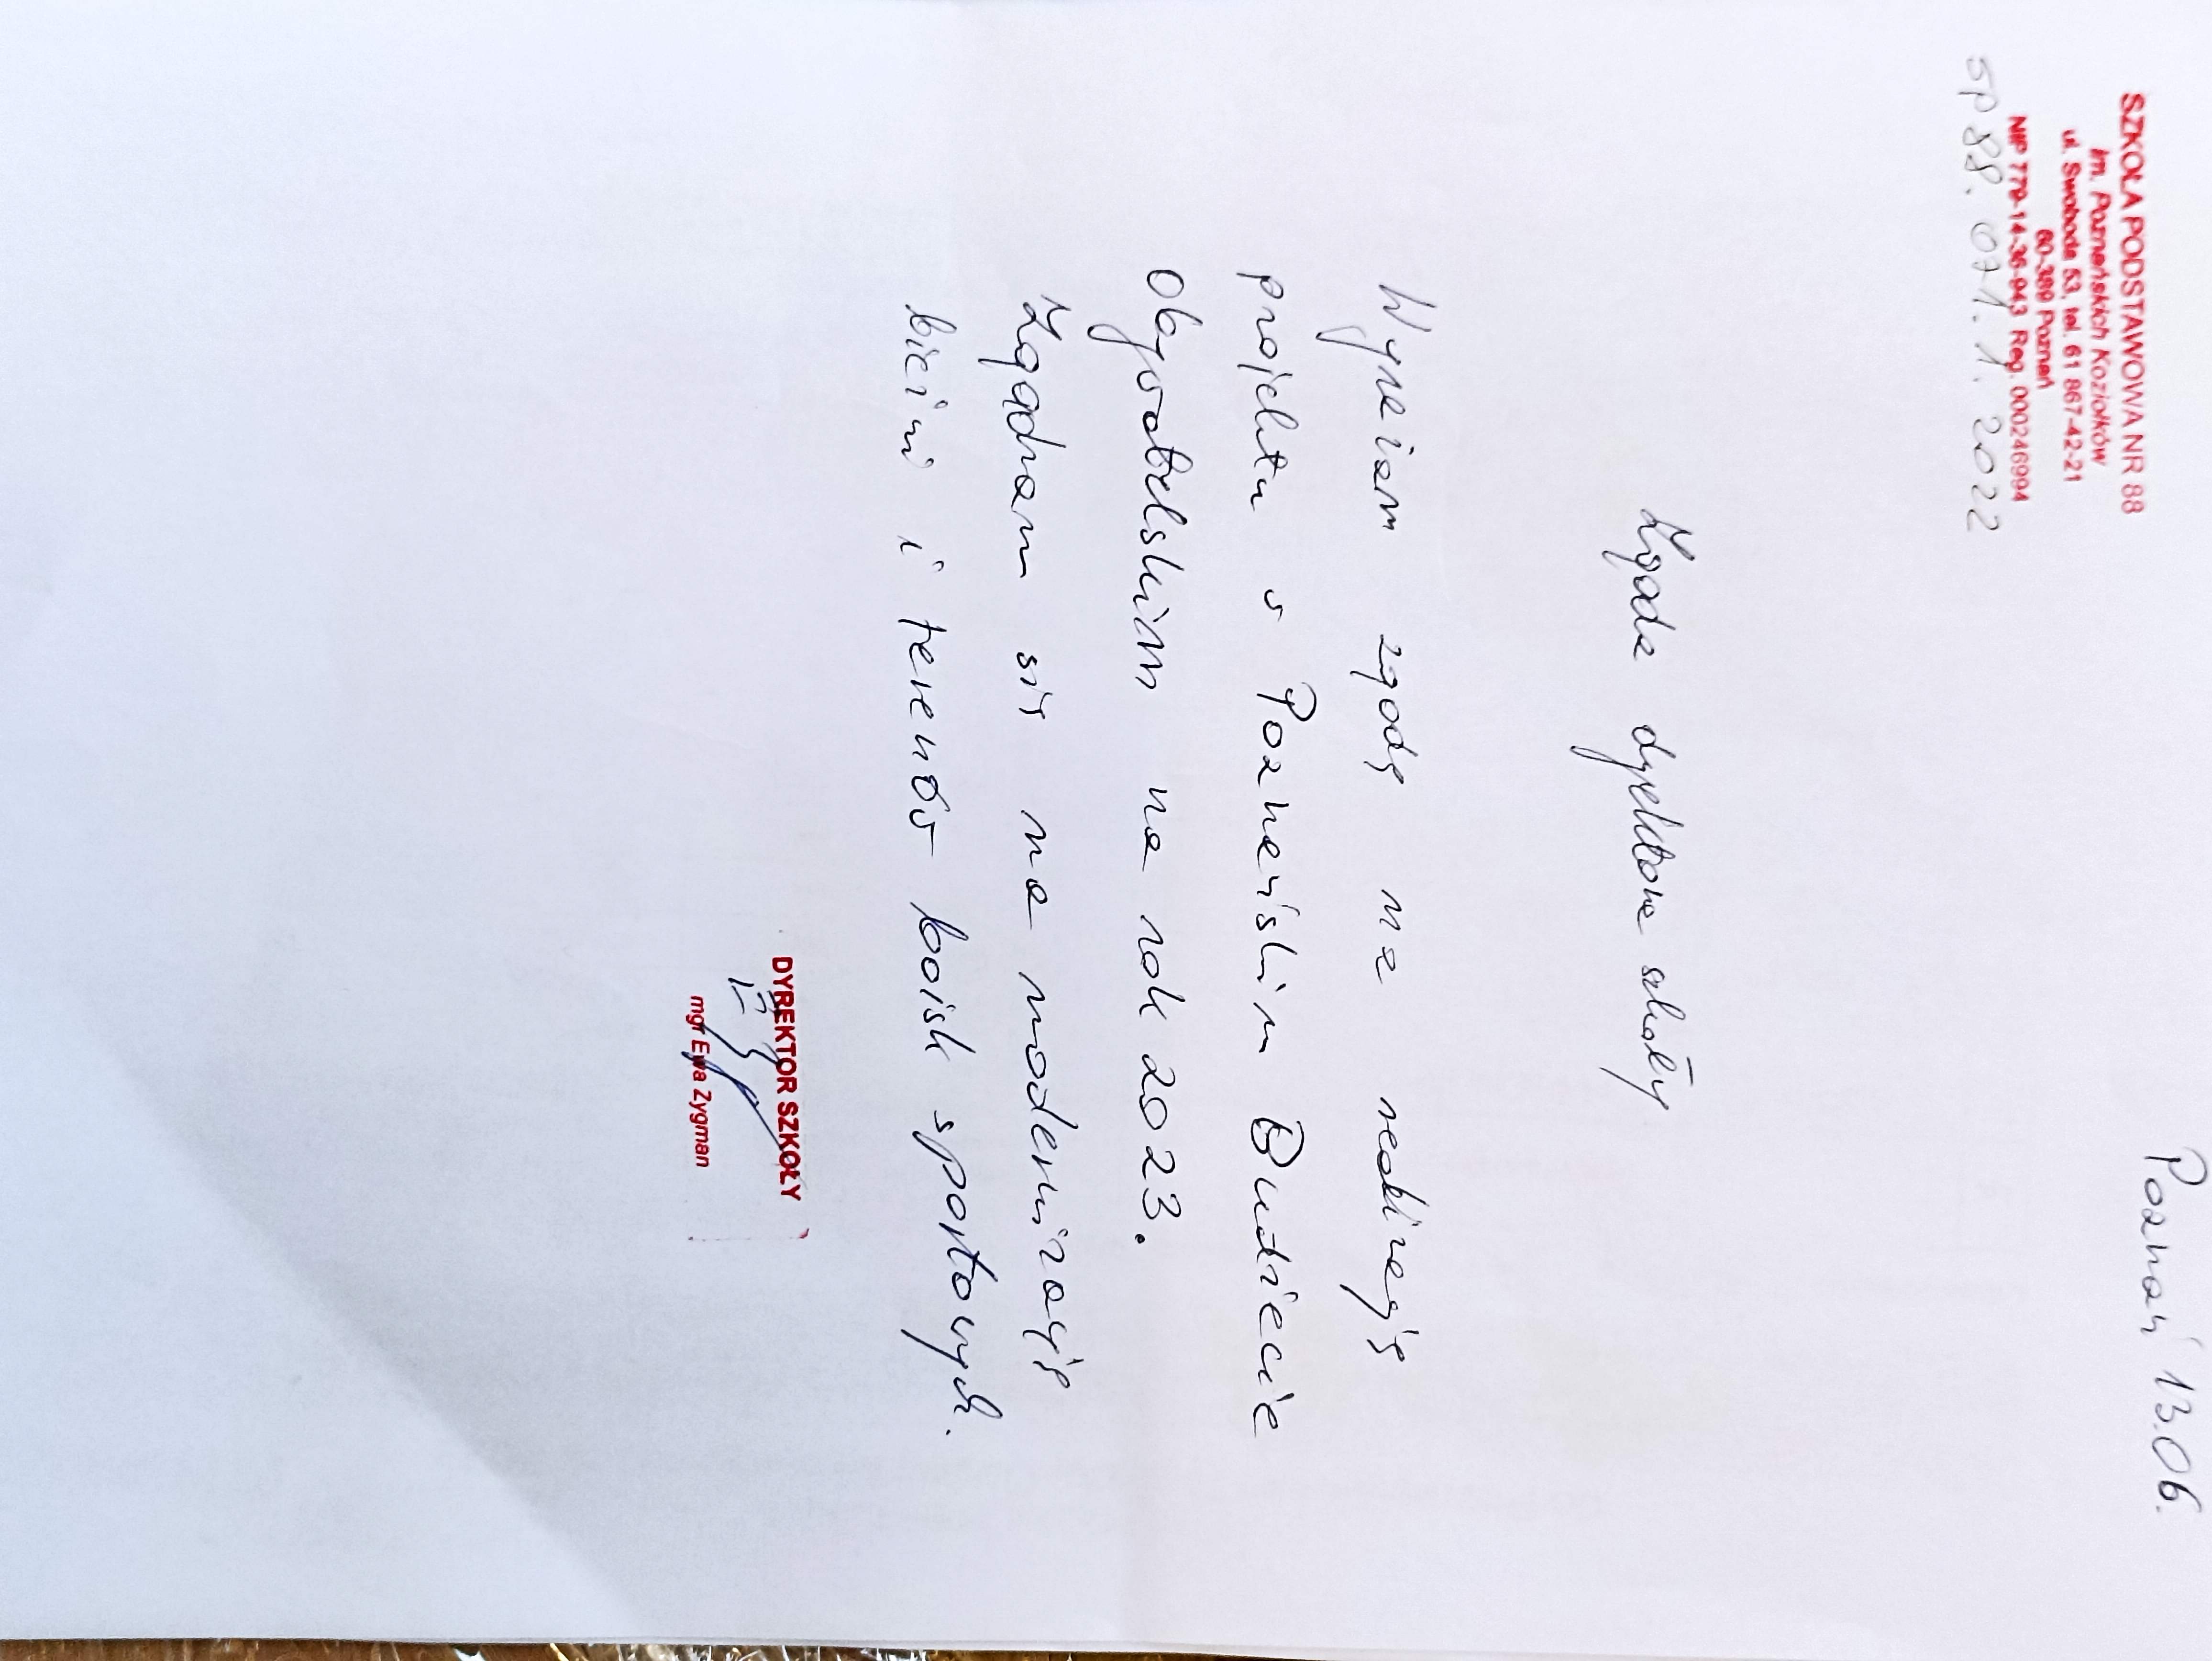 Poznań 13.06.
SZKOŁA PODSTAWOWA NR 88
im. Poznańskich Koziołków
ul. Swoboda 53, tel. 61 867-42-21
60-389 Poznań
NIP 779-14-36-943 Reg. 000246994
SP 88. 071. 1. 2022
Zgoda dyrektora szkoły
Wyrażam zgodę na realizację
projektu w Poznańskim Budżecie
Obywatelskim na rok 2023.
Zgadzam się na modernizację
bieżni i terenów boisk sportowych.
DYREKTOR SZKOŁY
mgr Ewa Zygman